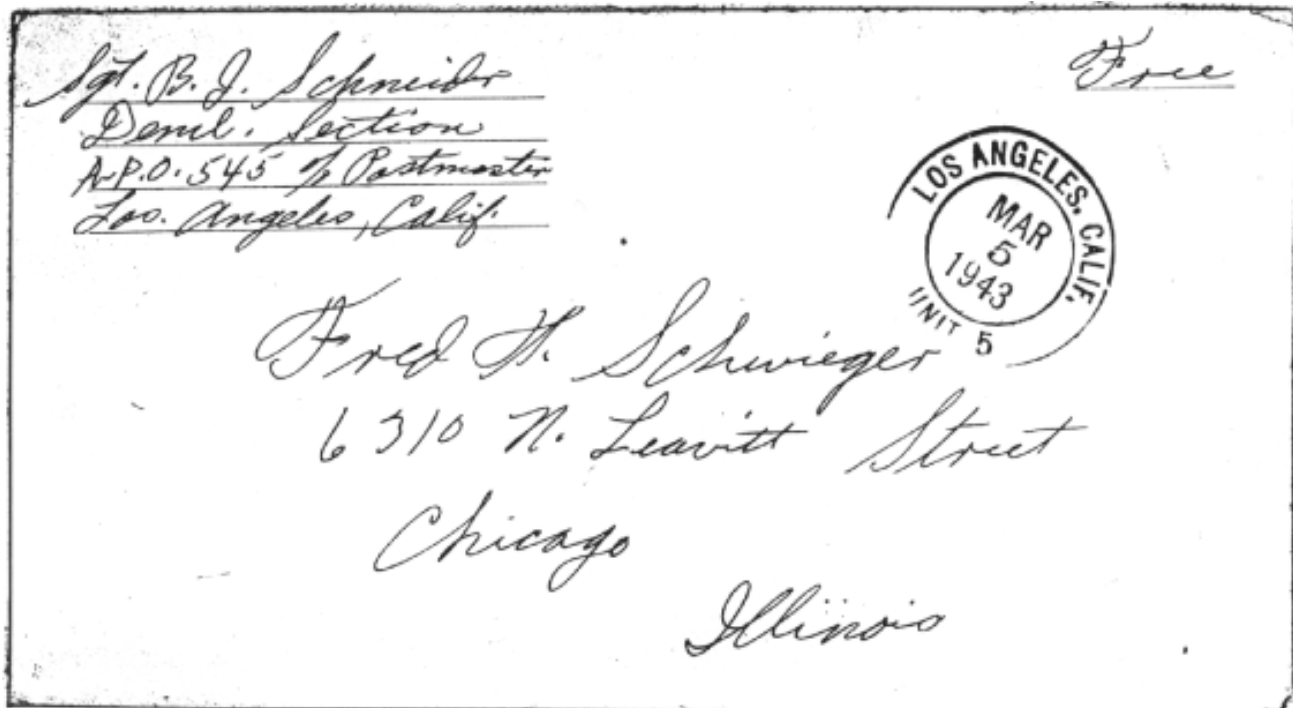 Sgt. B. J. Schneider
Free
Deml. Section
A.P.O. 545 c/o Postmaster
Los. Angeles, Calif.
LOS ANGELES, CALIF.
MAR
5
1943
UNIT 5
Fred H. Schwieger
6310 N. Leavitt Street
Chicago
Illinois